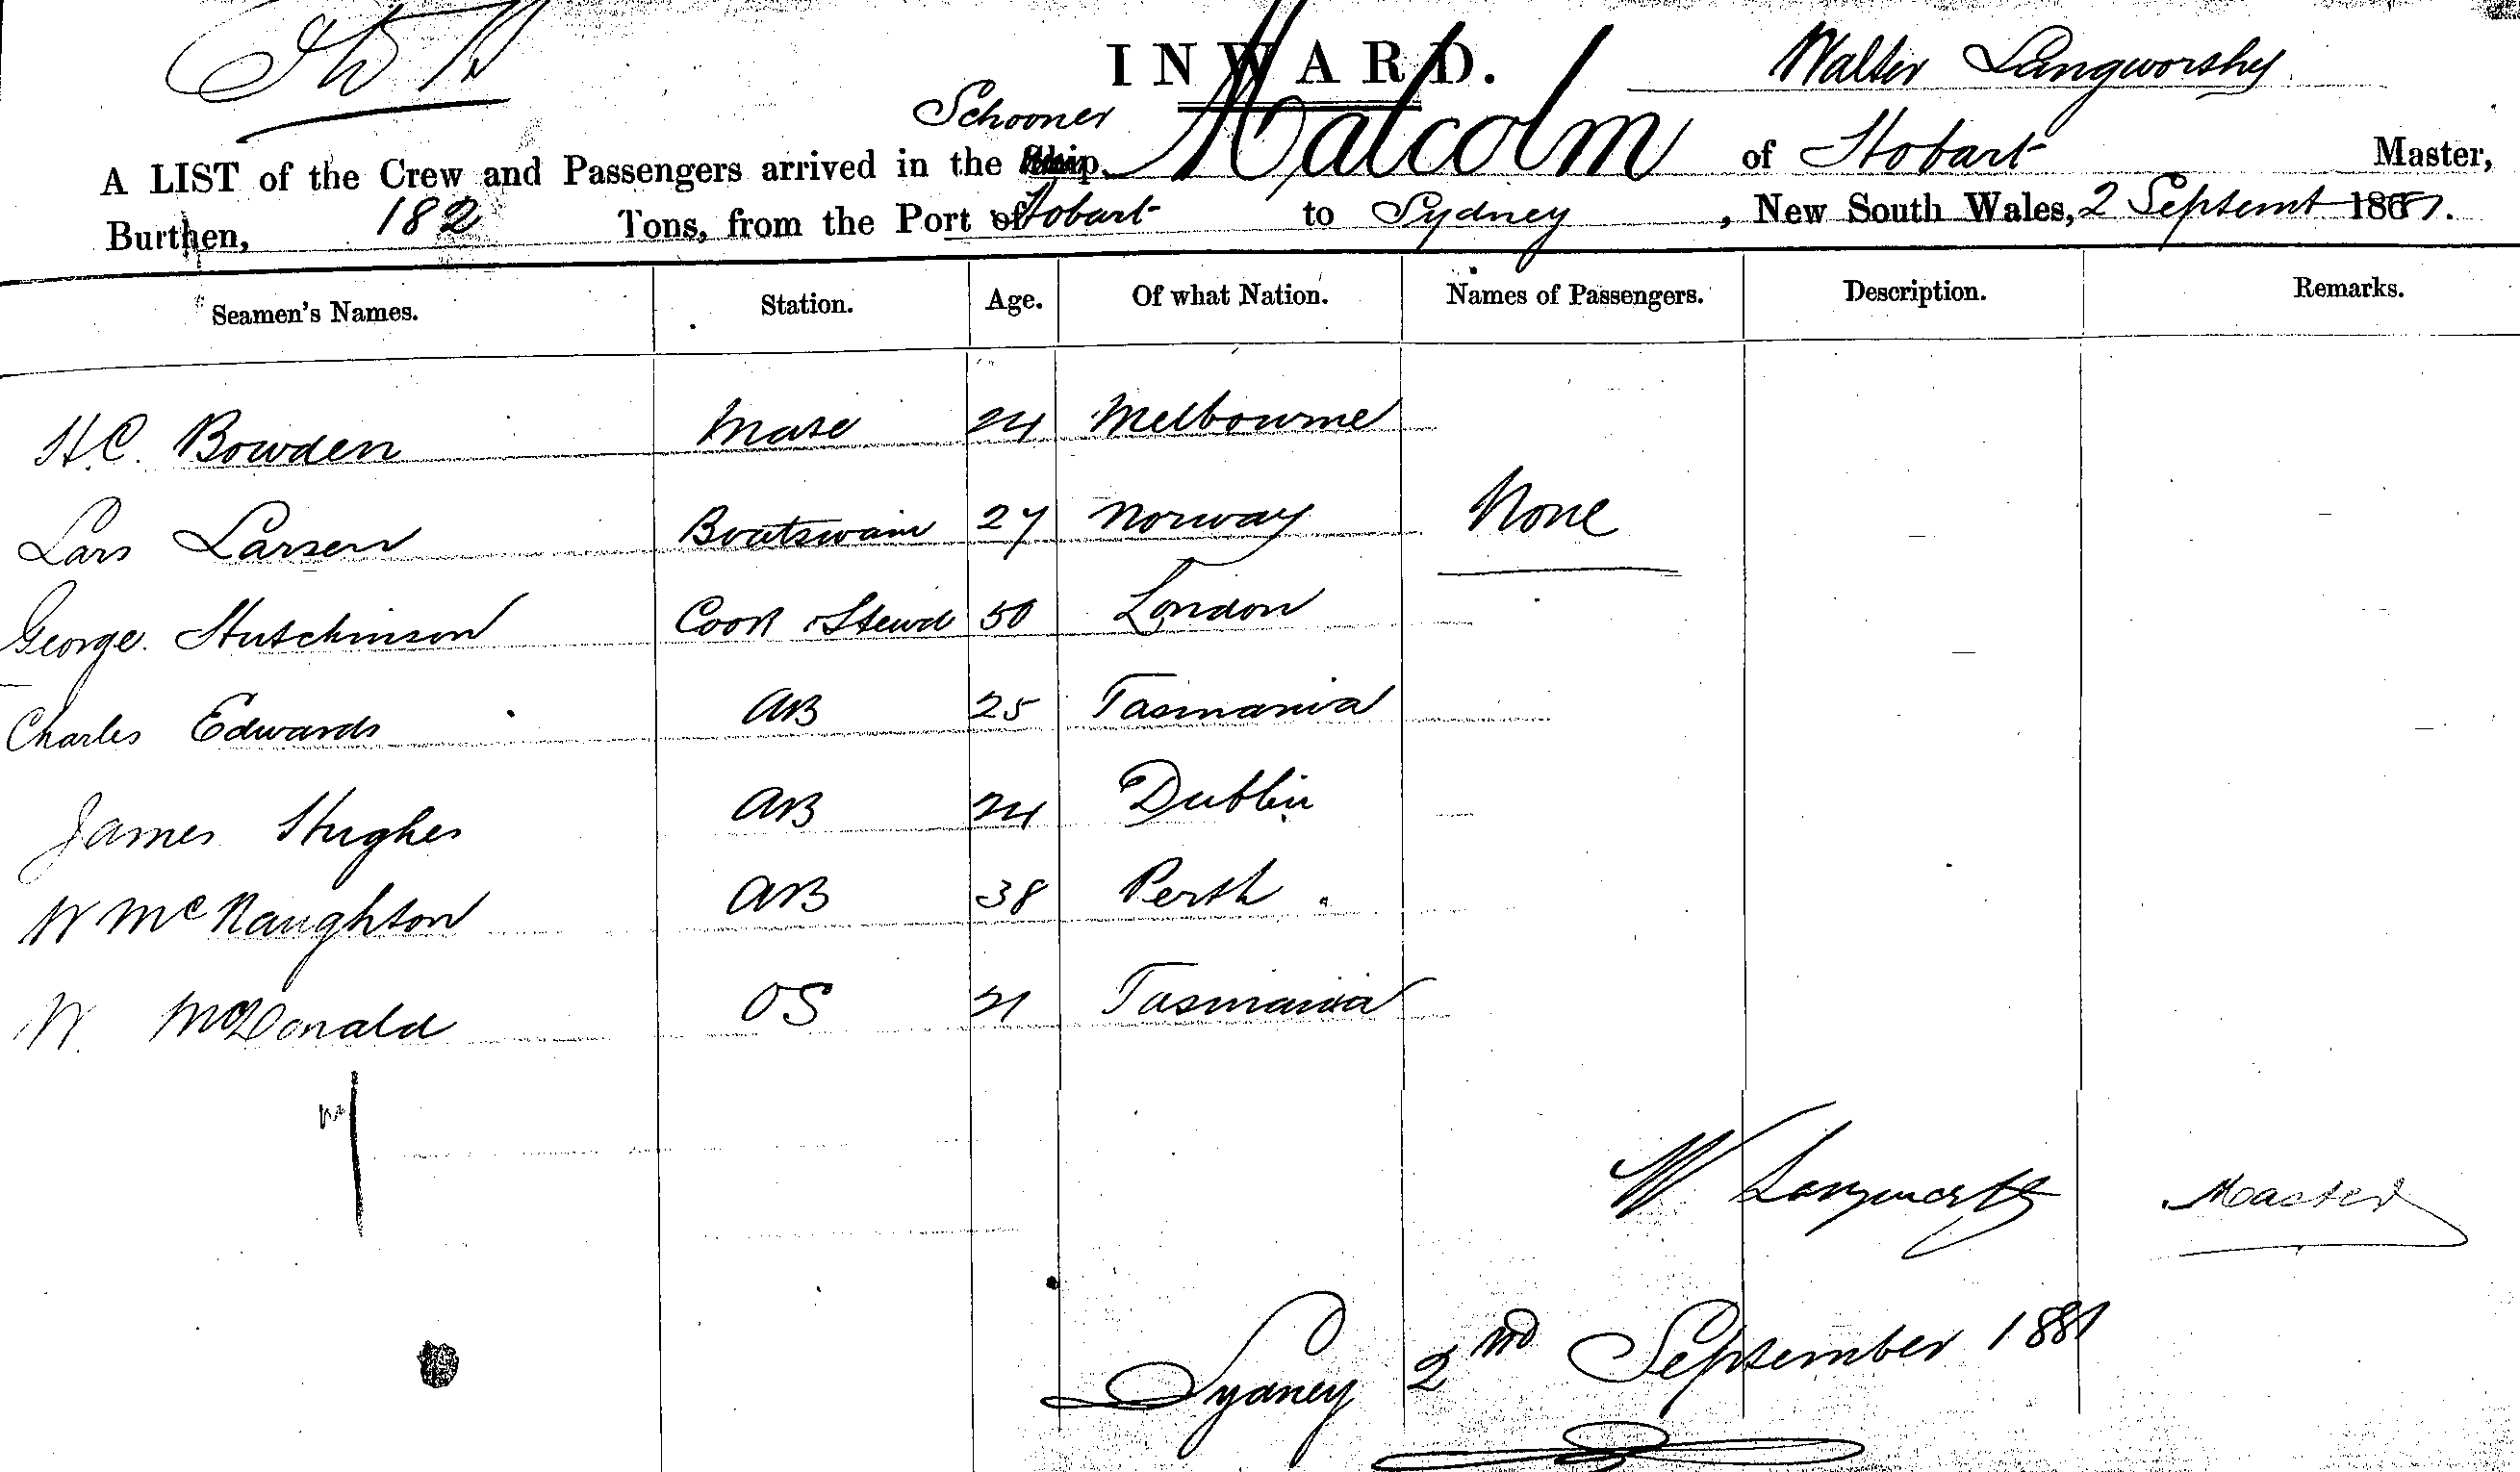 INWARD.
Walter Langworthy
Schooner
A LIST of the Crew and Passengers arrived in the Ship Malcolm of Hobart Master,
Burthen, 182 Tons, from the Port of Hobart to Sydney, New South Wales, 2 Septemt 1881.
Seamen's Names. Station. Age. Of what Nation. Names of Passengers. Description. Remarks.
H.C. Bowden Mate 24 Melbourne
Lars Larsen Boatswain 27 Norway None
George Hutchinson Cook & Stewd 50 London
Charles Edwards AB 25 Tasmania
James Hughes AB 24 Dublin
W McNaughton AB 38 Perth
W. McDonald OS 21 Tasmania
W Langworthy Master
Sydney 2nd September 1881